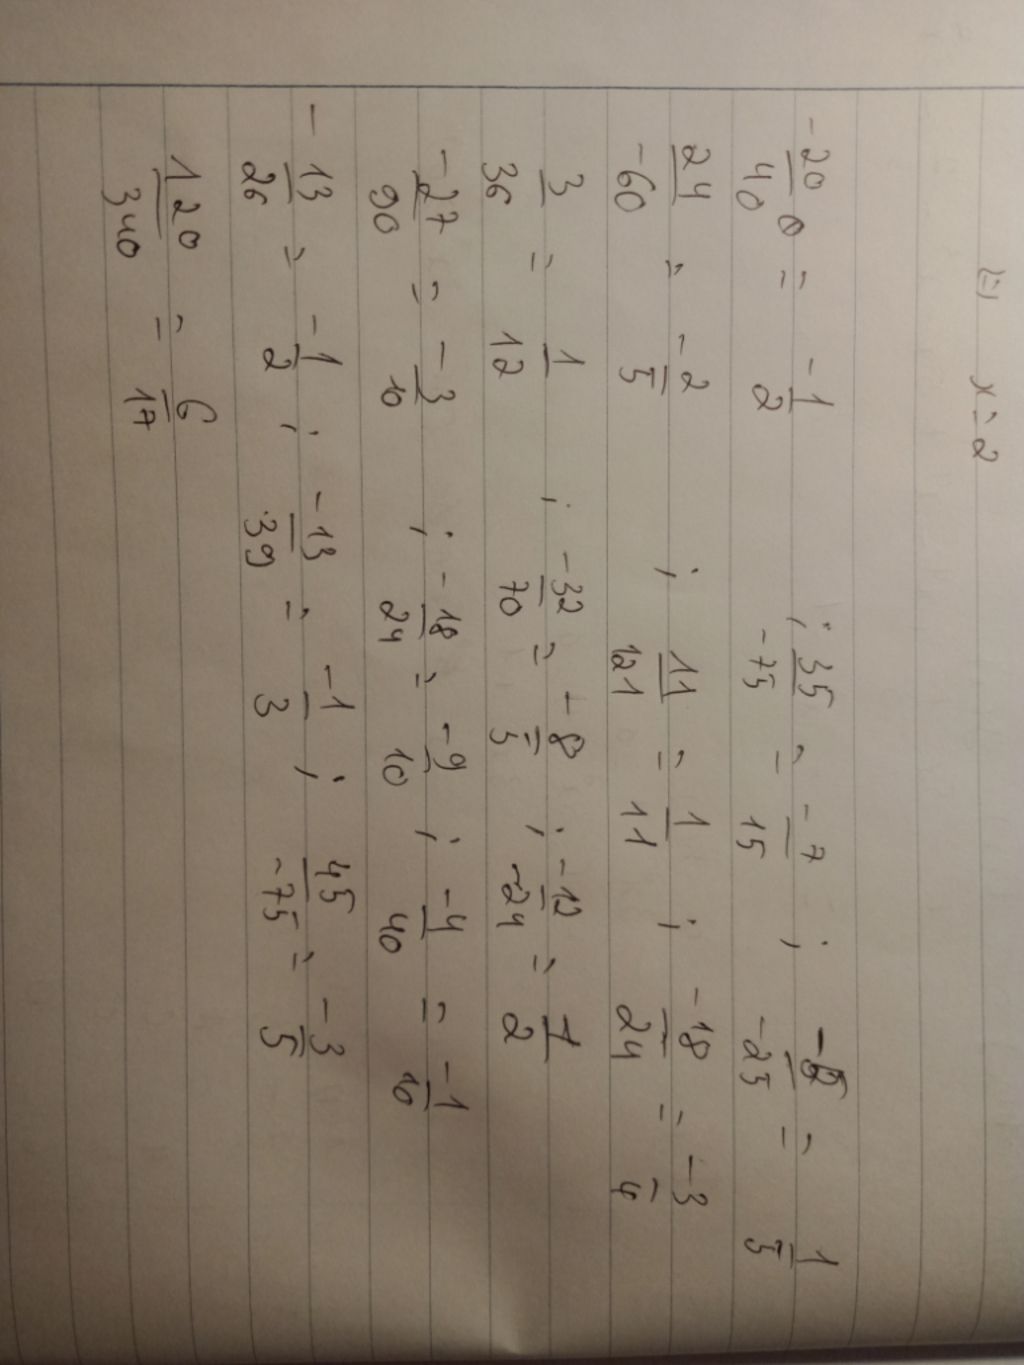 (=) x = 2
-20/40 = -1/2 ; 35/-75 = -7/15 ; -5/-25 = 1/5
24/-60 = -2/5 ; 11/121 = 1/11 ; -18/24 = -3/4
3/36 = 1/12 ; -32/70 = -8/5 ; -12/-24 = 1/2
-27/90 = -3/10 ; -18/24 = -9/10 ; -4/40 = -1/10
-13/26 = -1/2 ; -13/39 = -1/3 ; 45/-75 = -3/5
120/340 = 6/17